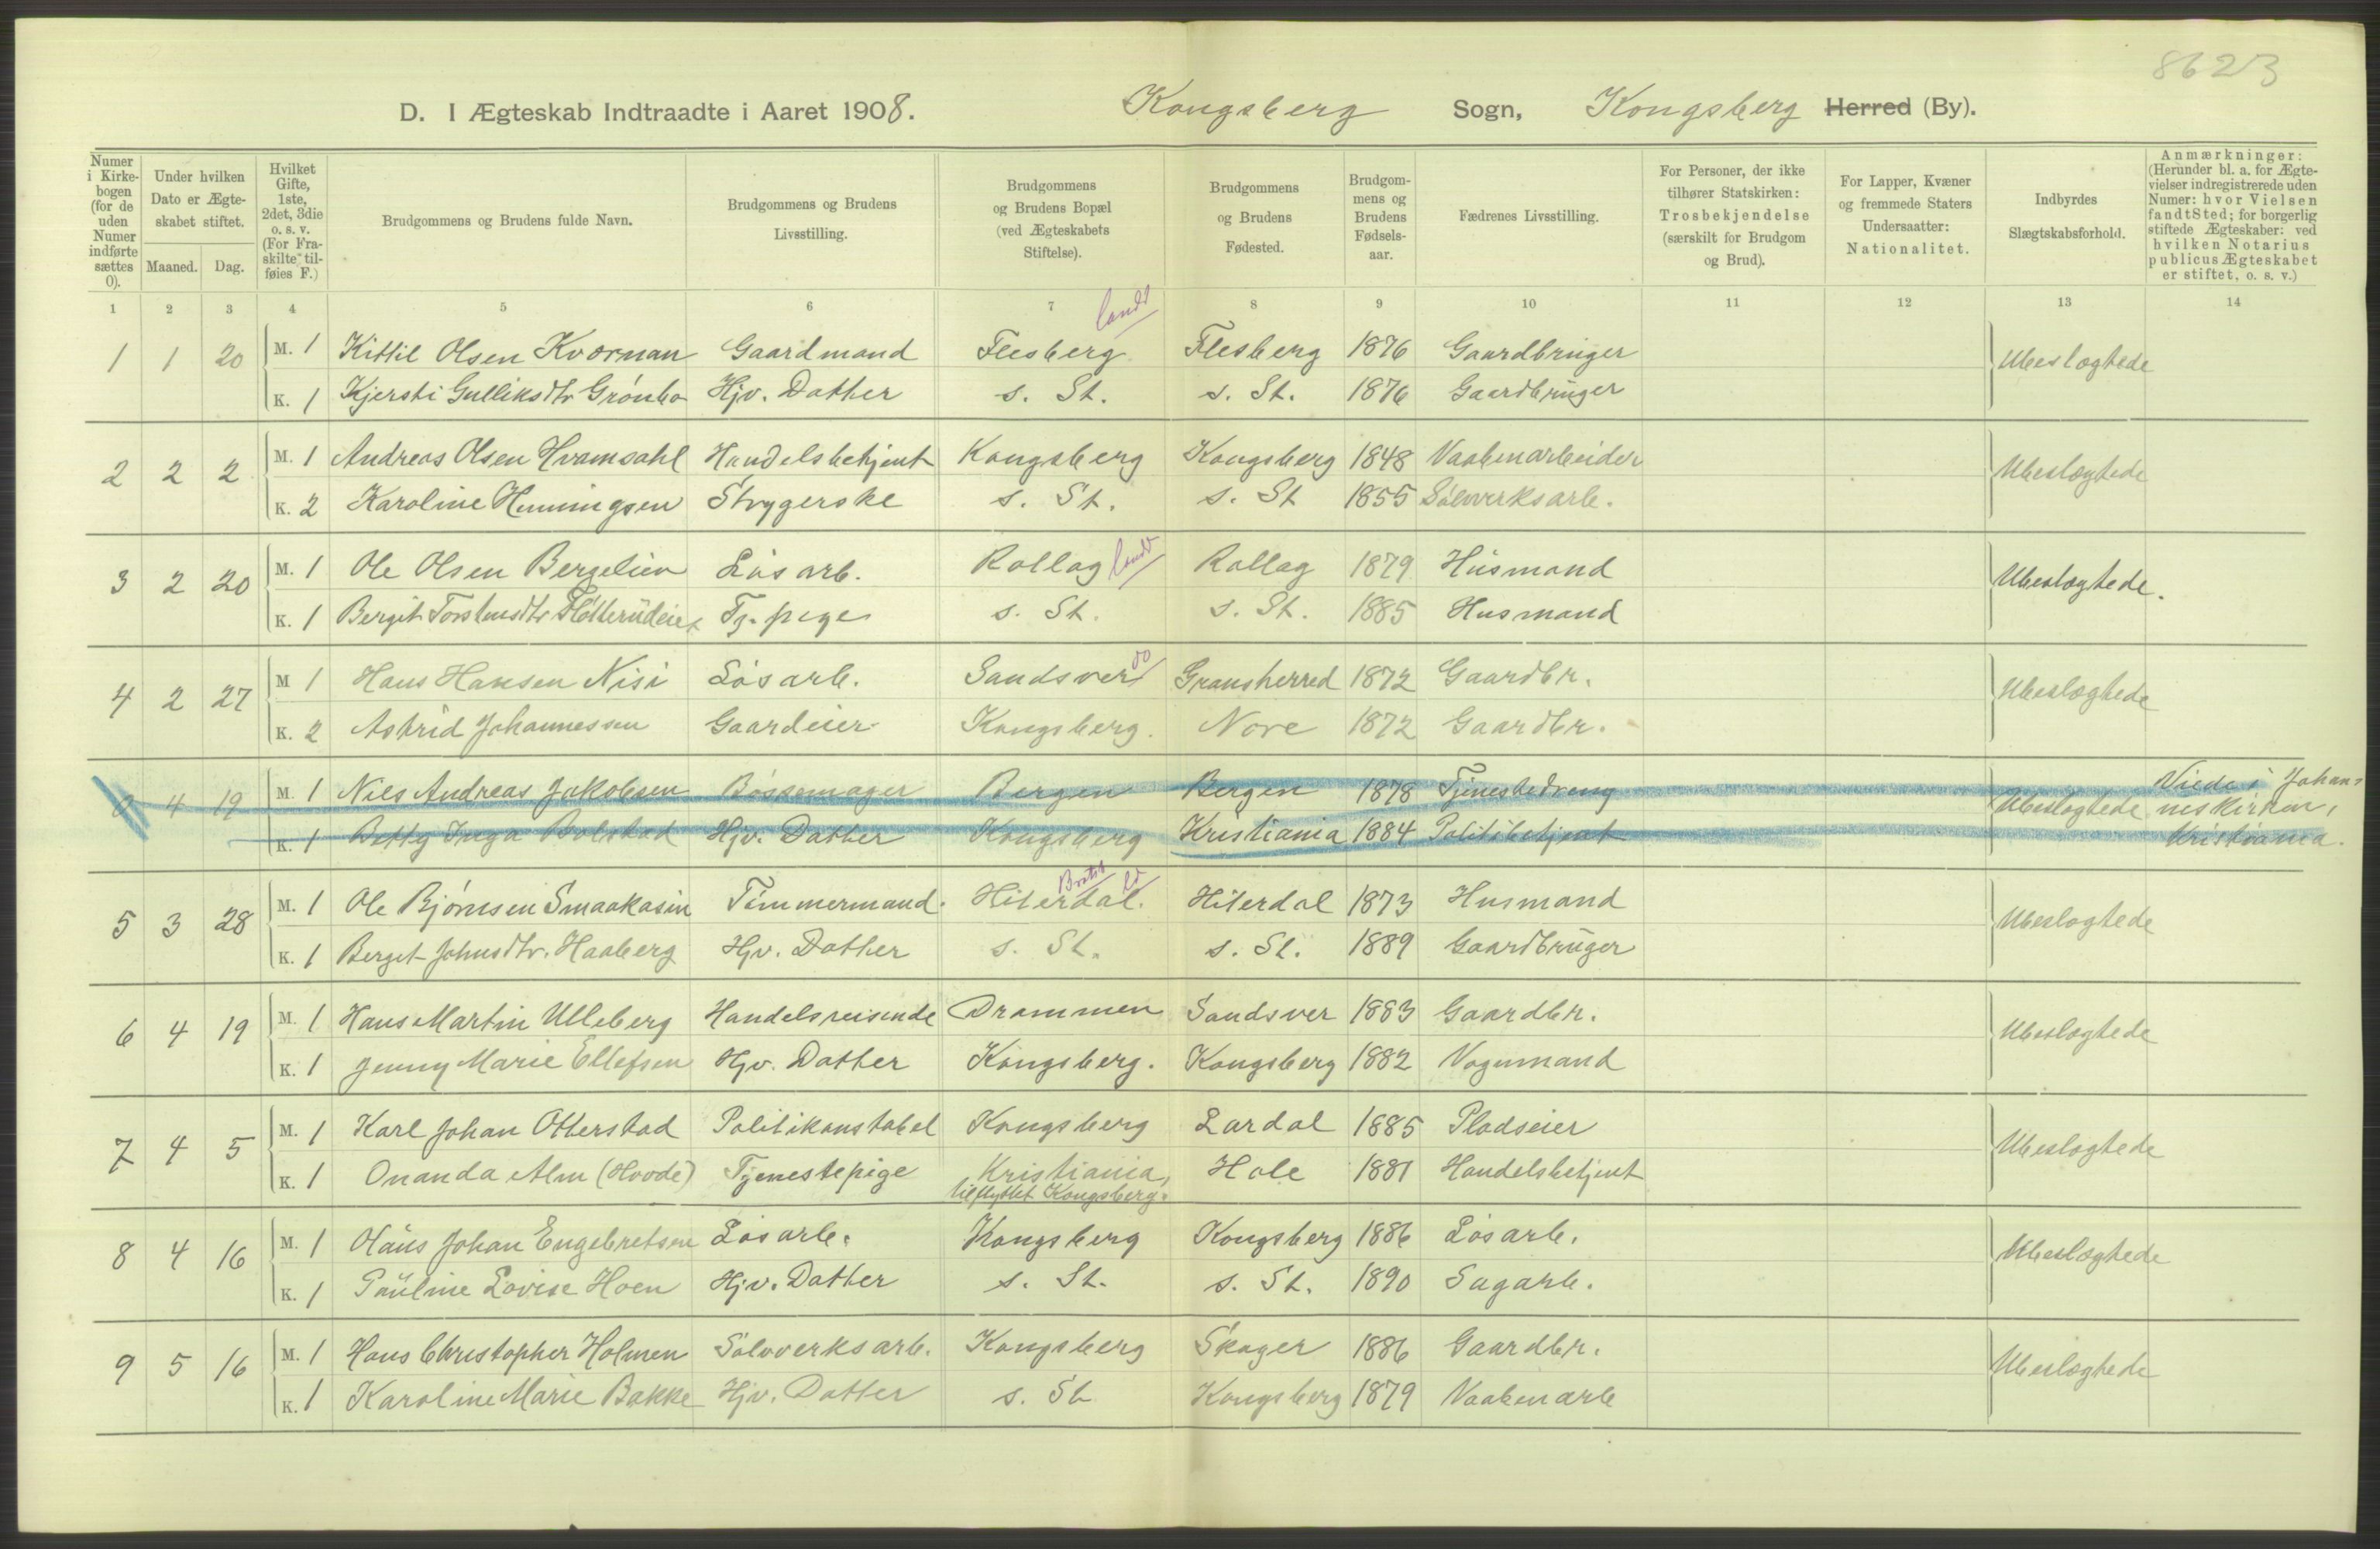 8623
D. I Ægteskab Indtraadte i Aaret 1908. Kongsberg Sogn, Kongsberg Herred (By).
Numer i Kirkebogen (for de uden Numer indførte sættes 0).
Under hvilken Dato er Ægteskabet stiftet.
Maaned. Dag.
Hvilket Gifte, 1ste, 2det, 3die o. s. v. (For Fraskilte tilføies F.)
Brudgommens og Brudens fulde Navn.
Brudgommens og Brudens Livsstilling.
Brudgommens og Brudens Bopæl (ved Ægteskabets Stiftelse).
Brudgommens og Brudens Fødested.
Brudgommens og Brudens Fødselsaar.
Fædrenes Livsstilling.
For Personer, der ikke tilhører Statskirken: Trosbekjendelse (særskilt for Brudgom og Brud).
For Lapper, Kvæner og fremmede Staters Undersaatter: Nationalitet.
Indbyrdes Slægtskabsforhold.
Anmærkninger: (Herunder bl. a. for Ægtevielser indregistrerede uden Numer: hvor Vielsen fandt Sted; for borgerlig stiftede Ægteskaber: ved hvilken Notarius publicus Ægteskabet er stiftet, o. s. v.)
1 2 3 4 5 6 7 8 9 10 11 12 13 14
1 1 20 M. 1 Kittil Olsen Kvernan Gaardmand Flesberg land Flesberg 1876 Gaardbruger Ubeslægtede
K. 1 Kjersti Gulliksdtr Grønbo Hjv. Datter s. St. s. St. 1876 Gaardbruger
2 2 2 M. 1 Andreas Olsen Hvamsahl Handelsbetjent Kongsberg Kongsberg 1848 Vaabenarbeider Ubeslægtede
K. 2 Karoline Henningsen Strygerske s. St. s. St 1855 Sølvverksarb.
3 2 20 M. 1 Ole Olsen Bergelien Løsarb. Rollag land Rollag 1879 Husmand Ubeslægtede.
K. 1 Bergit Torstensdtr Tj. pige s. St. s. St. 1885 Husmand
4 2 27 M 1 Hans Hansen Nisi Løsarb. Sandsver do Gransherred 1872 Gaardbr. Ubeslægtede
K. 2 Astrid Johannessen Gaardeier Kongsberg. Nore 1872 Gaardbr.
0 4 19 M. 1 Niels Andreas Jakobsen Bøssemager Bergen Bergen 1878 Tjenestedreng Ubeslægtede Viede i Johanneskirken, Kristiania.
K. 1 Betty Inga Bolstad Hjv. Datter Kongsberg Kristiania 1884 Politibetjent
5 3 28 M. 1 Ole Bjørnsen Smaakasin Tømmermand. Hiterdal. Hiterdal 1873 Husmand Ubeslægtede
K. 1 Berget Johnsdtr. Haaberg Hjv. Datter s. St. s. St. 1889 Gaardbruger
6 4 19 M. 1 Hans Martin Ulleberg Handelsreisende Drammen Sandsver 1883 Gaardbr. Ubeslægtede
K. 1 Jenny Marie Ellefsen Hjv. Datter Kongsberg. Kongsberg 1882 Vognmand
7 4 5 M. 1 Karl Johan Otterstad Politikonstabel Kongsberg Lardal 1885 Pladseier Ubeslægtede
K. 1 Onanda Alm (Hovde) Tjenestepige Kristiania, tilflyttet Kongsberg. Hole 1881 Handelsbetjent
8 4 16 M. 1 Hans Johan Engebretsen Løsarb. Kongsberg Kongsberg 1886 Løsarb. Ubeslægtede
K. 1 Pauline Lovise Hoen Hjv. Datter s. St. s. St. 1890 Sagarb.
9 5 16 M. 1 Hans Christopher Holmen Sølvverksarb. Kongsberg Skoger 1886 Gaardbr. Ubeslægtede
K. 1 Karoline Marie Bakke Hjv. Datter s. St Kongsberg 1879 Vaabenarb